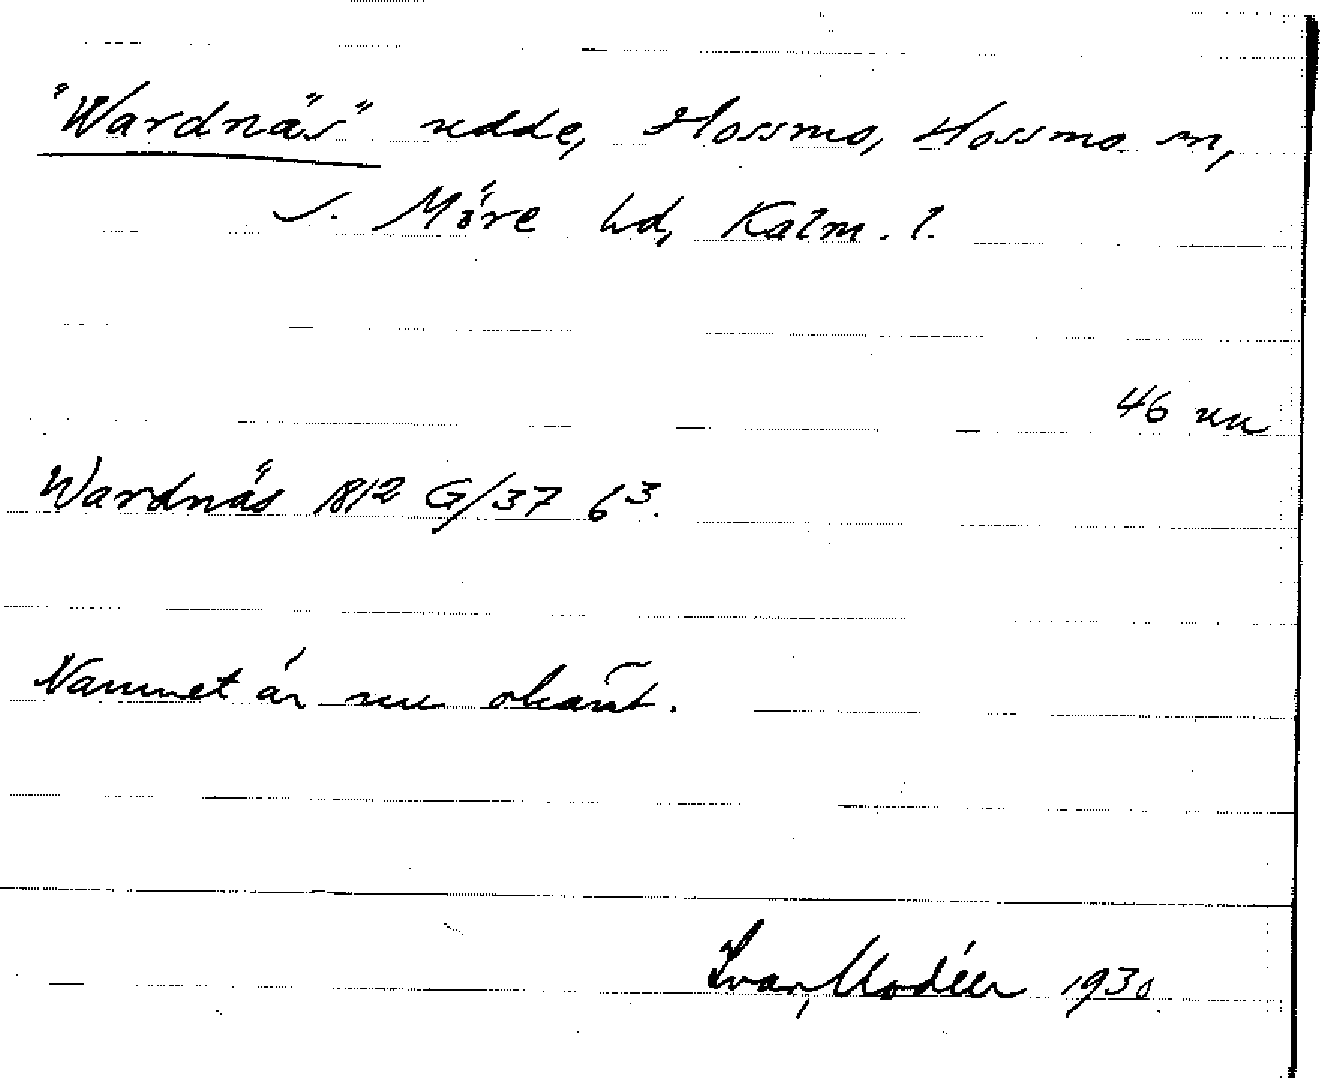 "Wardnäs" udde, Hossmo, Hossmo sn,
S. Möre hd, Kalm. l.
46 nu
Wardnäs 1812 G/37 63.
Namnet är nu okänt.
Ivar Modéer 1930